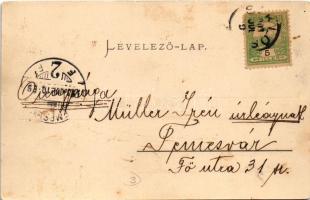 LEVELEZŐ-LAP.
Müller Irén úrleágnak
Temesvár
Fő utca 31